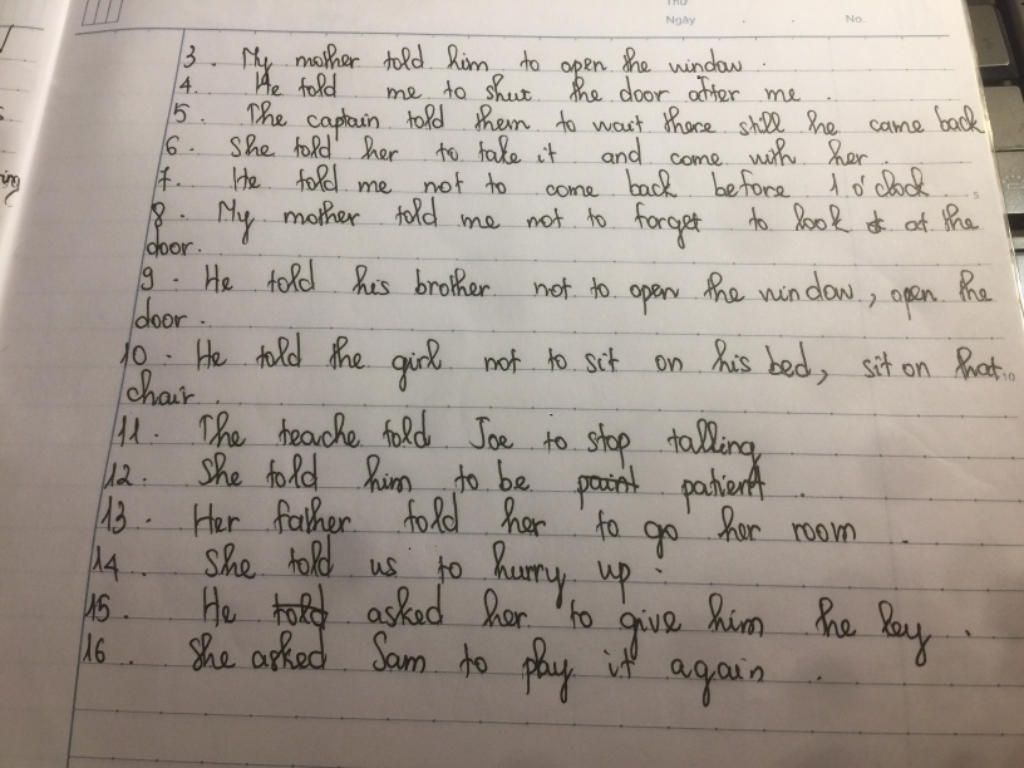 Thứ
Ngày . . No.
3. My mother told him to open the window.
4. He told me to shut the door after me.
5. The captain told them to wait there still he came back
6. She told her to take it and come with her.
7. He told me not to come back before 1 o'clock
8. My mother told me not to forget to look at the
door.
9. He told his brother not to open the window, open the
door.
10. He told the girl not to sit on his bed, sit on that
chair.
11. The teache told Joe to stop talling
12. She told him to be paint patient.
13. Her father told her to go her room.
14. She told us to hurry up.
15. He told asked her to give him the key.
16. She asked Sam to play it again.